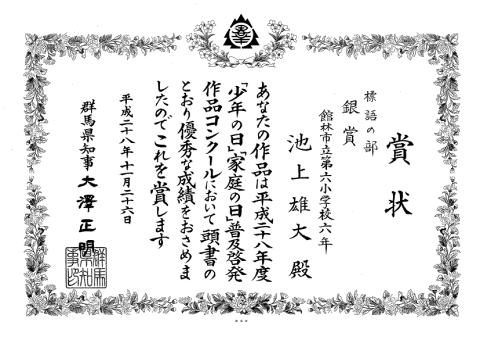 賞状
標語の部
銀賞
館林市立第六小学校六年
池上雄大殿
あなたの作品は平成二十八年度
「少年の日」「家庭の日」普及啓発
作品コンクールにおいて頭書の
とおり優秀な成績をおさめま
したのでこれを賞します
平成二十八年十一月二十六日
群馬県知事 大澤正明
群馬県知事印